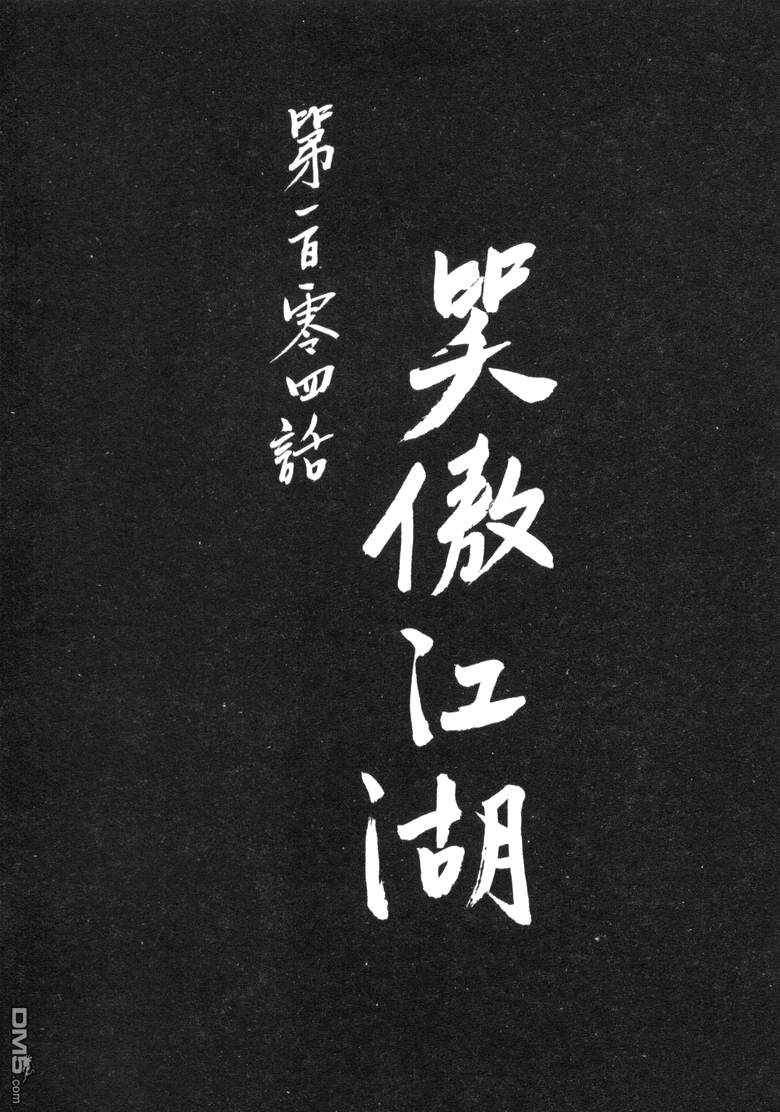 笑傲江湖
第一百零四話
DM5.com